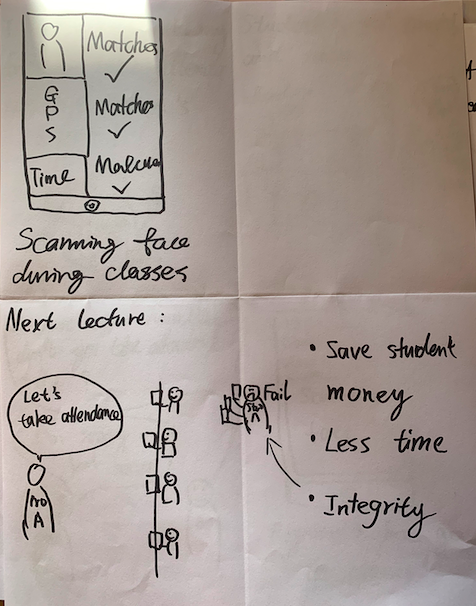 Matches
G
P
S
Matches
Time
Scanning face
during classes
Next lecture :
Let's
take attendance
A
Fail
• Save student
money
• Less time
• Integrity